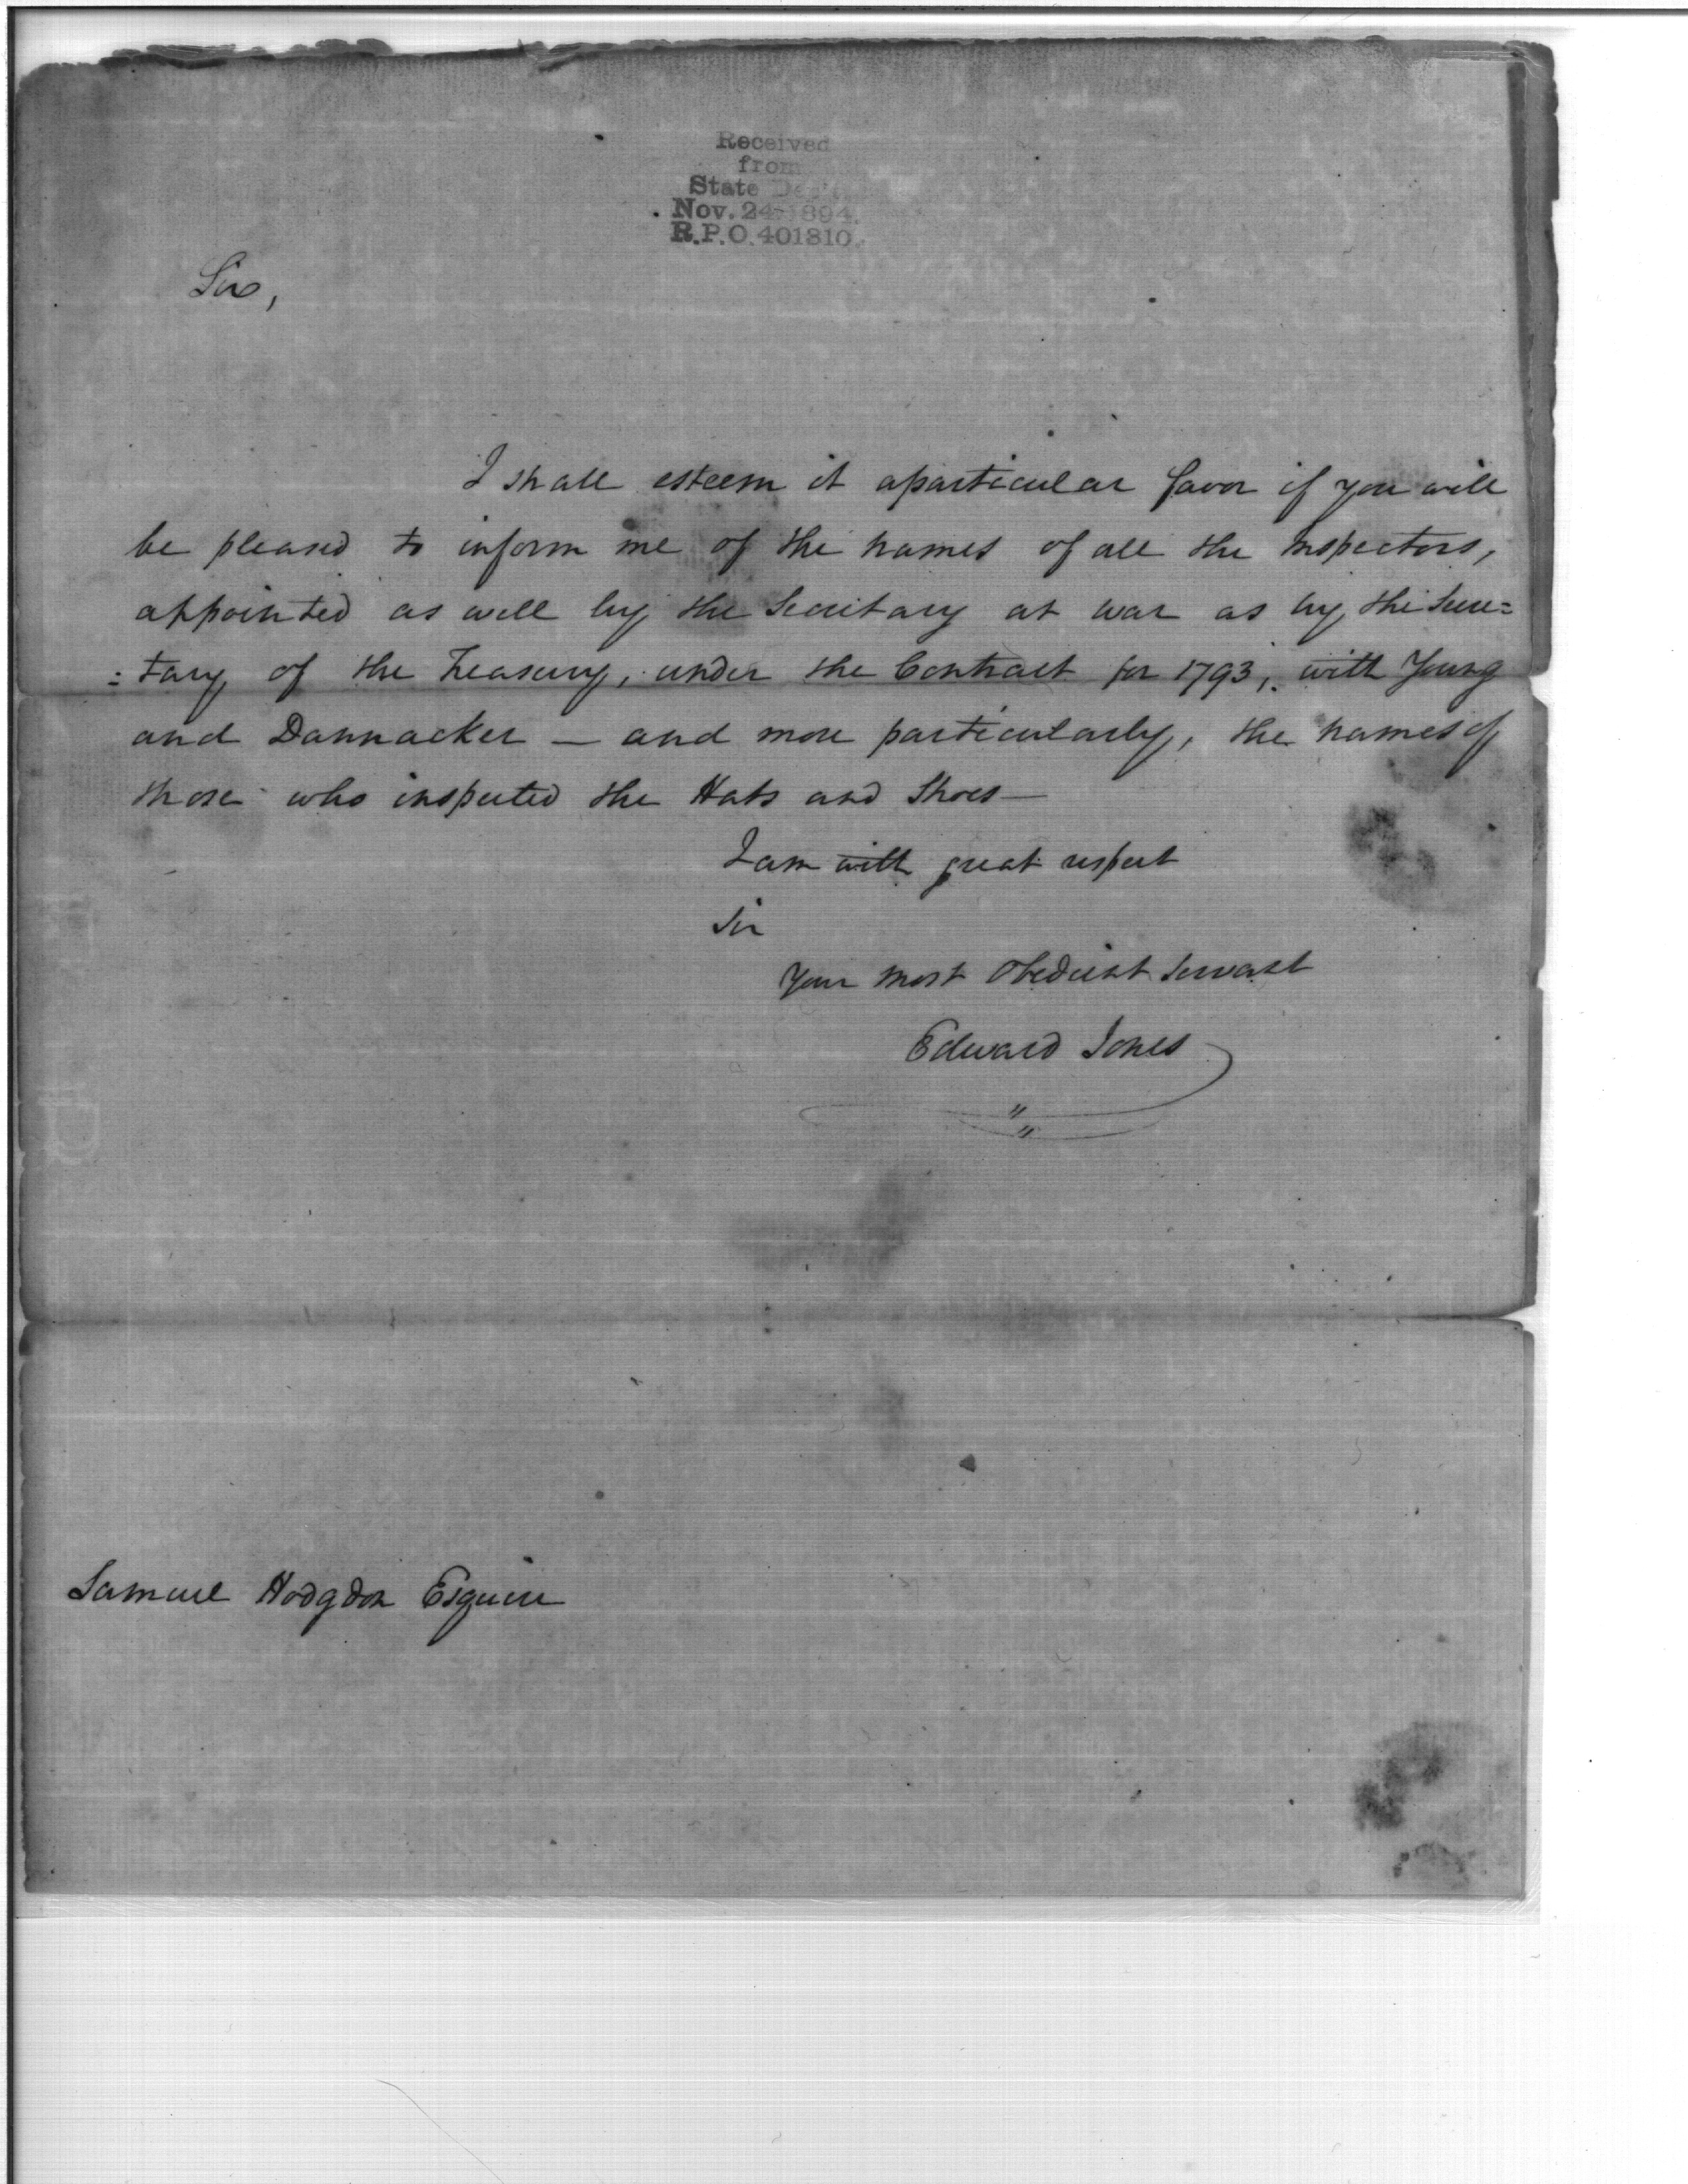 Received
from
State Dept.
Nov. 24 1894.
R.P.O. 401810.
Sir,
I shall esteem it a particular favor if you will
be pleased to inform me of the names of all the Inspectors,
appointed as well by the Secretary at war as by the Secre=
=tary of the Treasury, under the Contract for 1793, with Young
and Dannacker — and more particularly, the names of
those who inspected the Hats and Shoes —
I am with great respect
Sir
Your most Obedient Servant
Edward Jones
Samuel Hodgdon Esquire